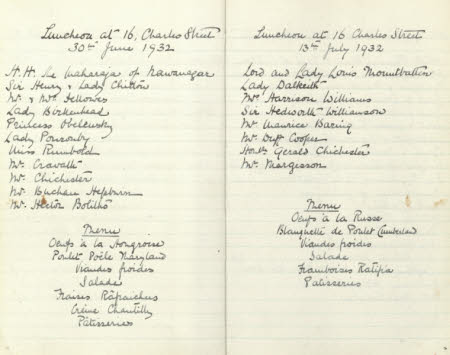 Luncheon at 16, Charles Street
30th June 1932
H.H. The Maharaja of Nawanagar
Sir Henry & Lady Chilton
Mr. & Mrs. Fellowes
Lady Birkenhead
Princess Obolensky
Lady Ponsonby
Miss Rumbold
Mr. Cravath
Mr. Chichester
Mr. Buchan Hepburn
Mr. Hector Bolitho
Menu
Oeufs à la Hongroise
Poulet Poêle Maryland
Viandes froides
Salade
Fraises Râfraichies
Crème Chantilly
Pâtisseries
Luncheon at 16 Charles Street
13th July 1932
Lord and Lady Louis Mountbatten
Lady Dalkeith
Mrs Harrison Williams
Sir Hedworth Williamson
Mr. Maurice Baring
Mr. Duff Cooper
Honble Gerald Chichester
Mr. Margesson
Menu
Oeufs à la Russe
Blanquette de Poulet Cumberland
Viandes froides
Salade
Framboises Ratifia
Patisseries